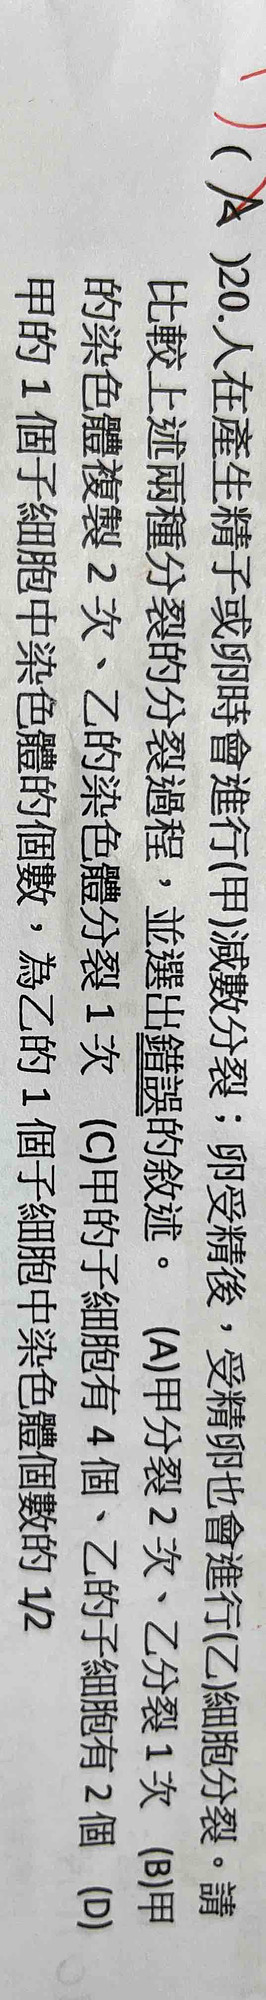 ( A )20.人在產生精子或卵時會進行(甲)減數分裂；卵受精後，受精卵也會進行(乙)細胞分裂。請
比較上述兩種分裂的分裂過程，並選出錯誤的敘述。 (A)甲分裂 2 次、乙分裂 1 次 (B)甲
的染色體複製 2 次、乙的染色體分裂 1 次 (C)甲的子細胞有 4 個、乙的子細胞有 2 個 (D)
甲的 1 個子細胞中染色體的個數，為乙的 1 個子細胞中染色體個數的 1/2